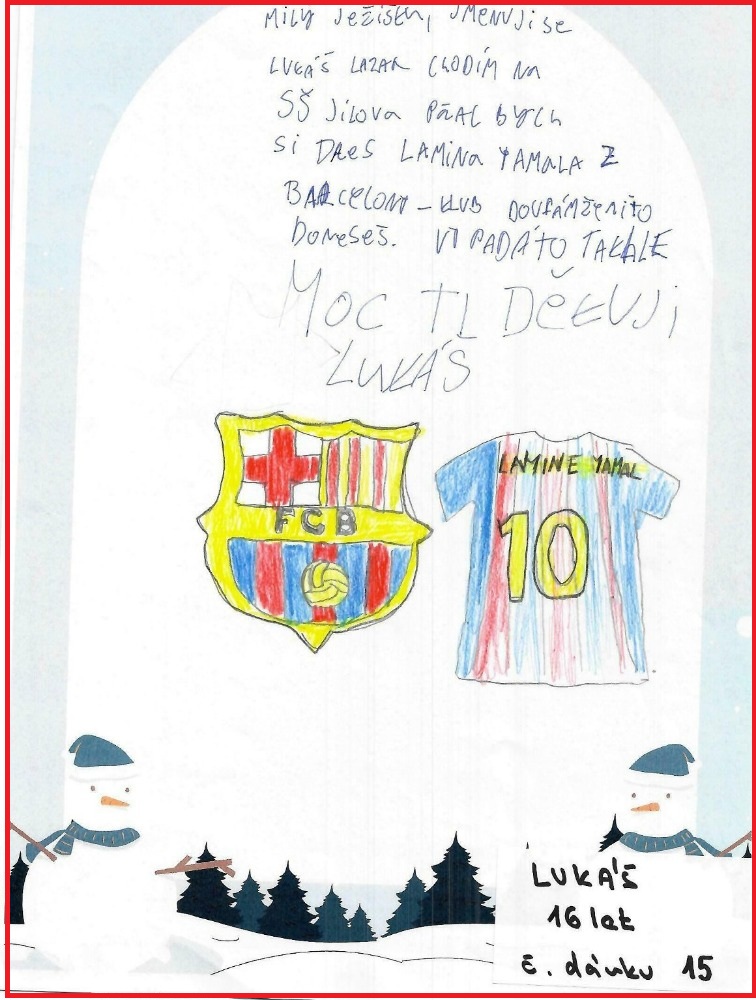 MILÝ JEŽÍŠKU, JMENUJI SE
LUKÁŠ LAZAR CHODÍM NA
SŠ JÍLOVÁ PŘÁL BYCH
SI DRES LAMINA YAMALA Z
BARCELONY - KLUB DOUFÁM ŽE MI TO
DONESEŠ. VYPADÁ TO TAKHLE
MOC TI DĚKUJI
LUKÁŠ
FCB
LAMINE YAMAL
10
LUKÁŠ
16 let
č. dárku 15